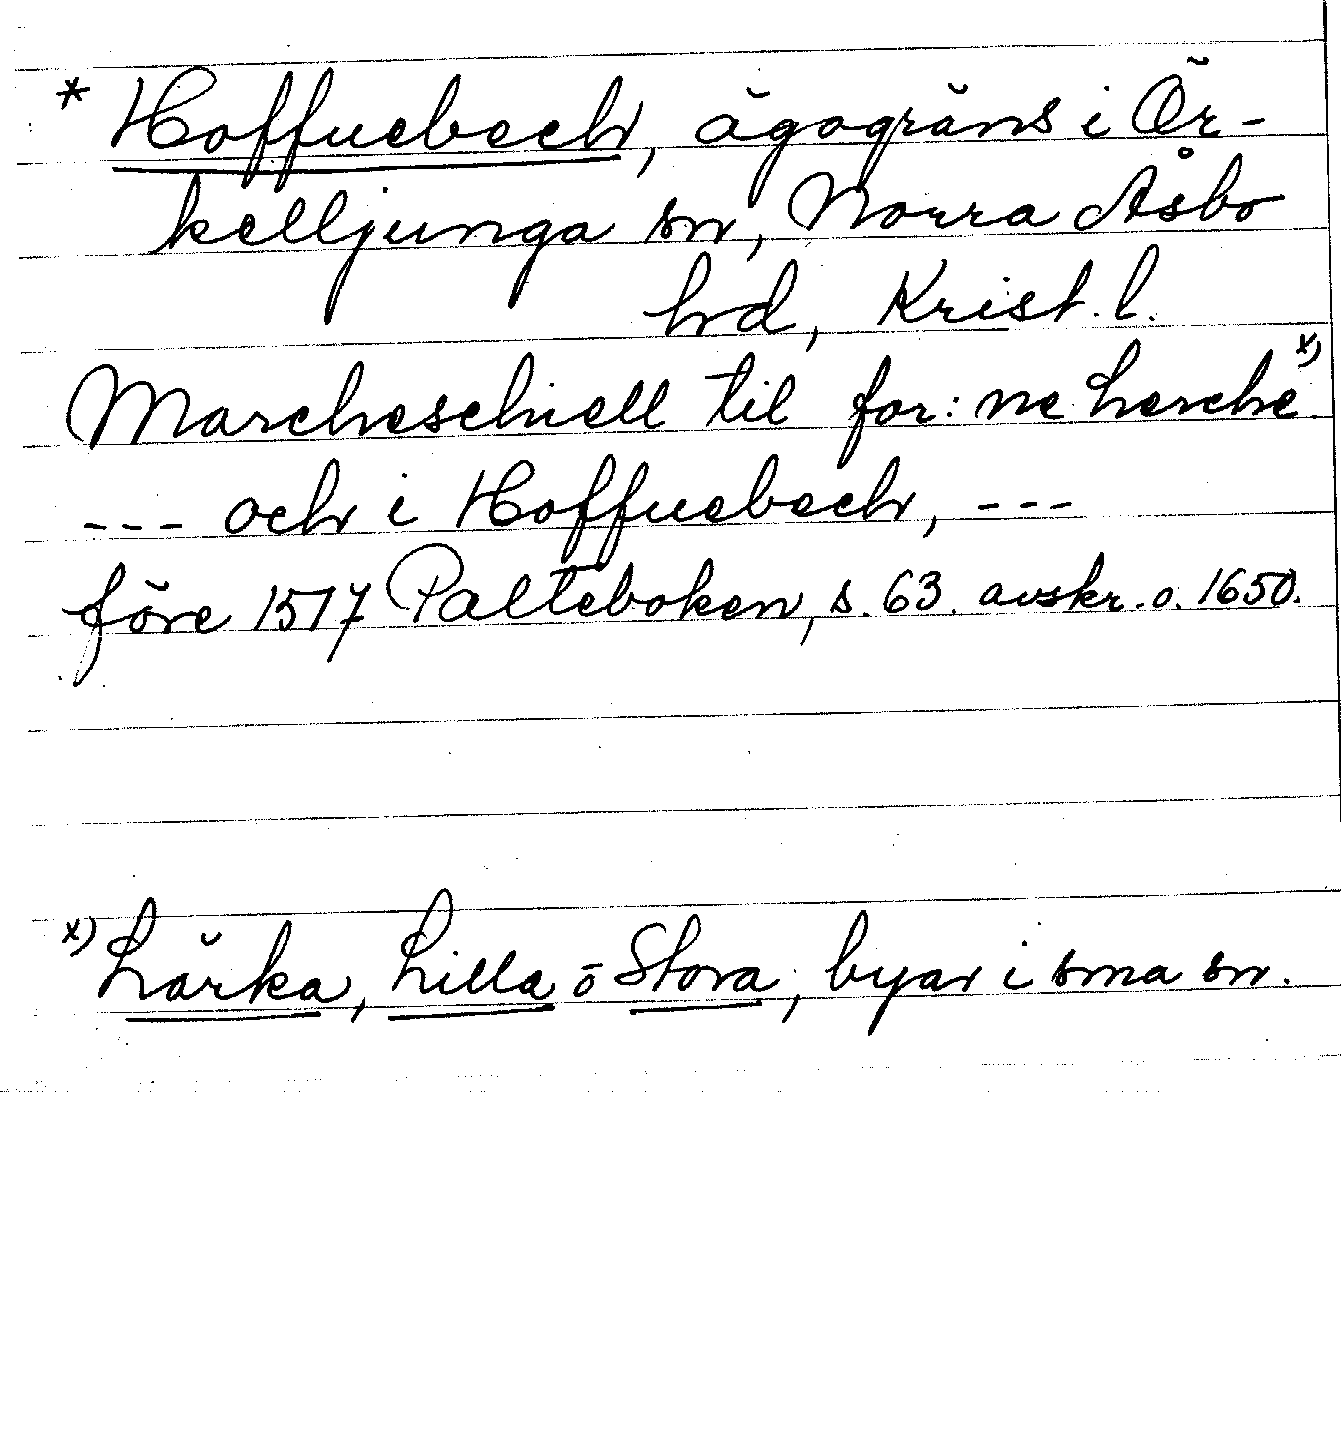 * Hoffuebech, ägogräns i Ör-
kelljunga sn, Norra Åsbo
hd, Krist. l.
Marcheschiell til for: ne Lerche x)
--- och i Hoffuebech, ---
före 1517 Palteboken, s. 63. avskr. o. 1650.
x) Lärka, Lilla o Stora, byar i sma sn.